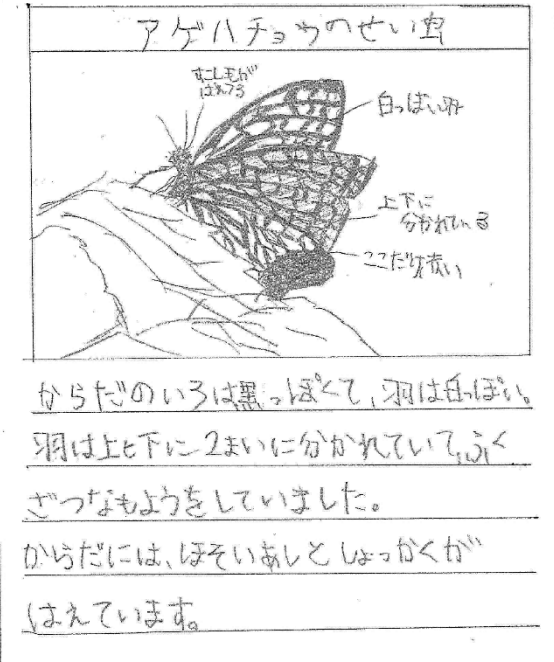 アゲハチョウのせい虫
すこし毛が
はえてる
白っぽい羽
上下に
分かれている
ここだけ赤い
からだのいろは黒っぽくて、羽は白っぽい。
羽は上と下に2まいに分かれていて、ふく
ざつなもようをしていました。
からだには、ほそいあしとしょっかくが
はえています。